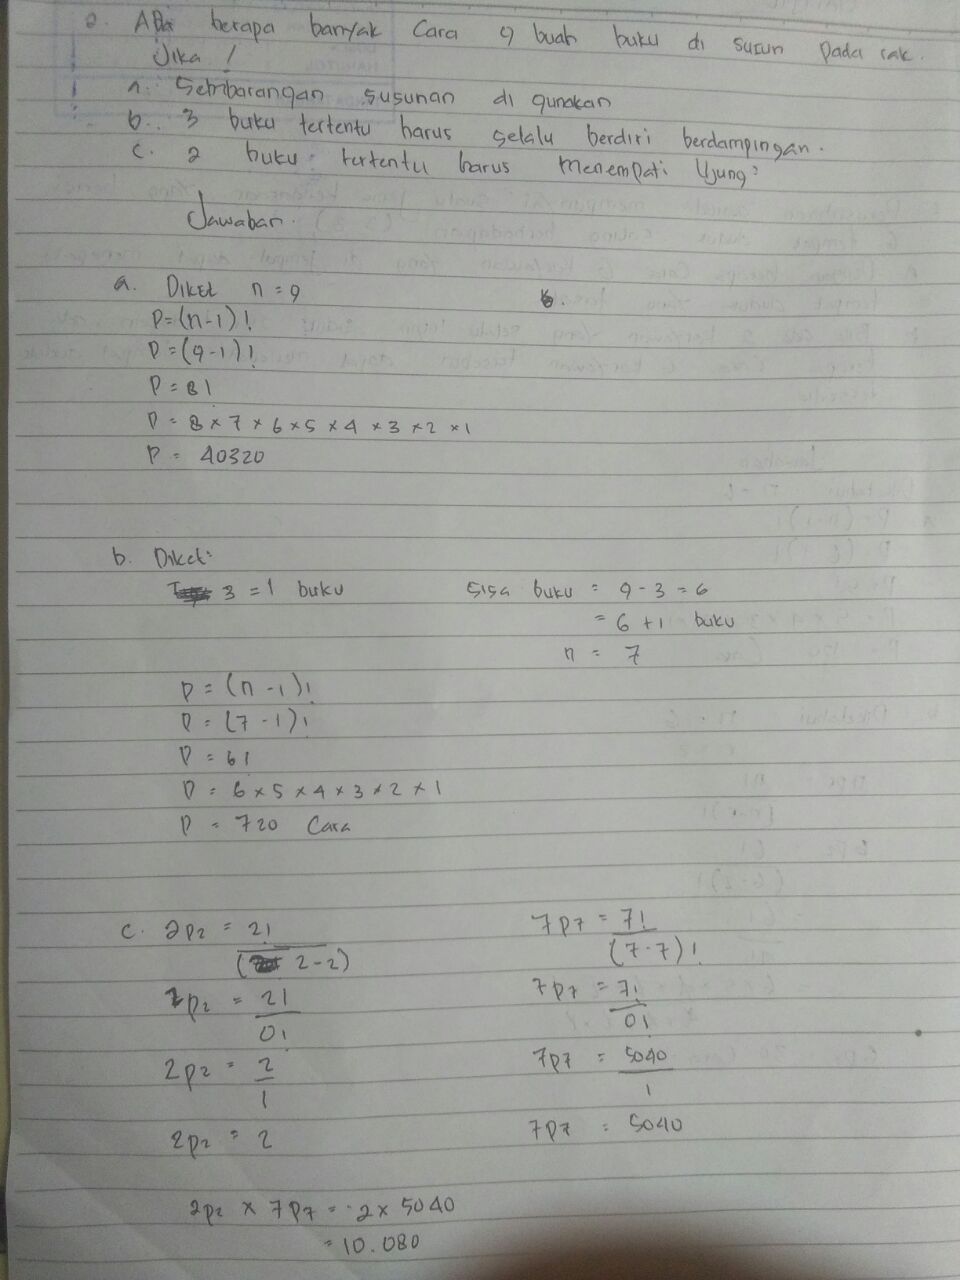 2. Ada berapa banyak Cara 9 buah buku di susun pada rak.
Jika !
a. Sembarangan susunan di gunakan
b. 3 buku tertentu harus selalu berdiri berdampingan.
c. 2 buku tertentu harus menempati Ujung²
Jawaban.
a. Diket n = 9
P = (n-1)!
P = (9-1)!
P = 8!
P = 8 x 7 x 6 x 5 x 4 x 3 x 2 x 1
P = 40320
b. Diket:
3 = 1 buku
Sisa buku = 9 - 3 = 6
= 6 + 1 buku
n = 7
P = (n - 1)!
P = (7 - 1)!
P = 6!
P = 6 x 5 x 4 x 3 x 2 x 1
P = 720 Cara
c. 2P2 = 2!
(2-2)
2P2 = 2!
0!
2P2 = 2
1
2P2 = 2
7P7 = 7!
(7-7)!
7P7 = 7!
0!
7P7 = 5040
1
7P7 = 5040
2P2 x 7P7 = 2 x 5040
= 10.080